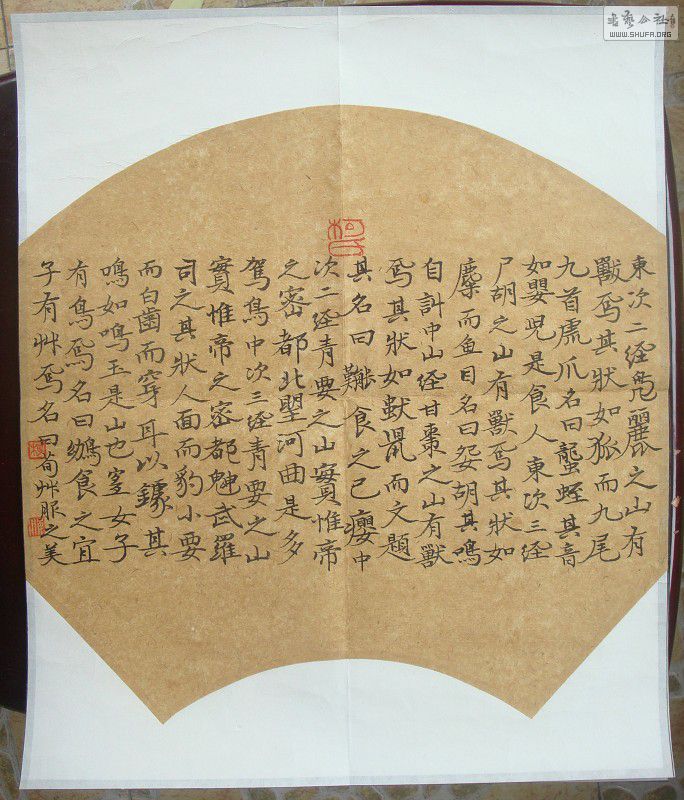 東次二經鳧麗之山有
獸焉其狀如狐而九尾
九首虎爪名曰蠪蛭其音
如嬰兒是食人東次三經
尸胡之山有獸焉其狀如
麋而鱼目名曰妴胡其鳴
自訆中山經甘棗之山有獸
焉其狀如䑕而文題
其名曰㔮食之已癭中
次二經青要之山實惟帝
之密都北望河曲是多
駕鳥中次三經青要之山
實惟帝之密都䰠武羅
司之其狀人面而豹小要
而白齒而穿耳以鐻其
鳴如鳴玉是山也宜女子
有鳥焉名曰鴢食之宜
子有艸焉名曰荀艸服之美
柯氏
書藝公社
WWW.SHUFA.ORG